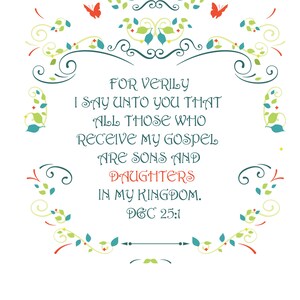 FOR VERILY
I SAY UNTO YOU THAT
ALL THOSE WHO
RECEIVE MY GOSPEL
ARE SONS AND
DAUGHTERS
IN MY KINGDOM.
D&C 25:1